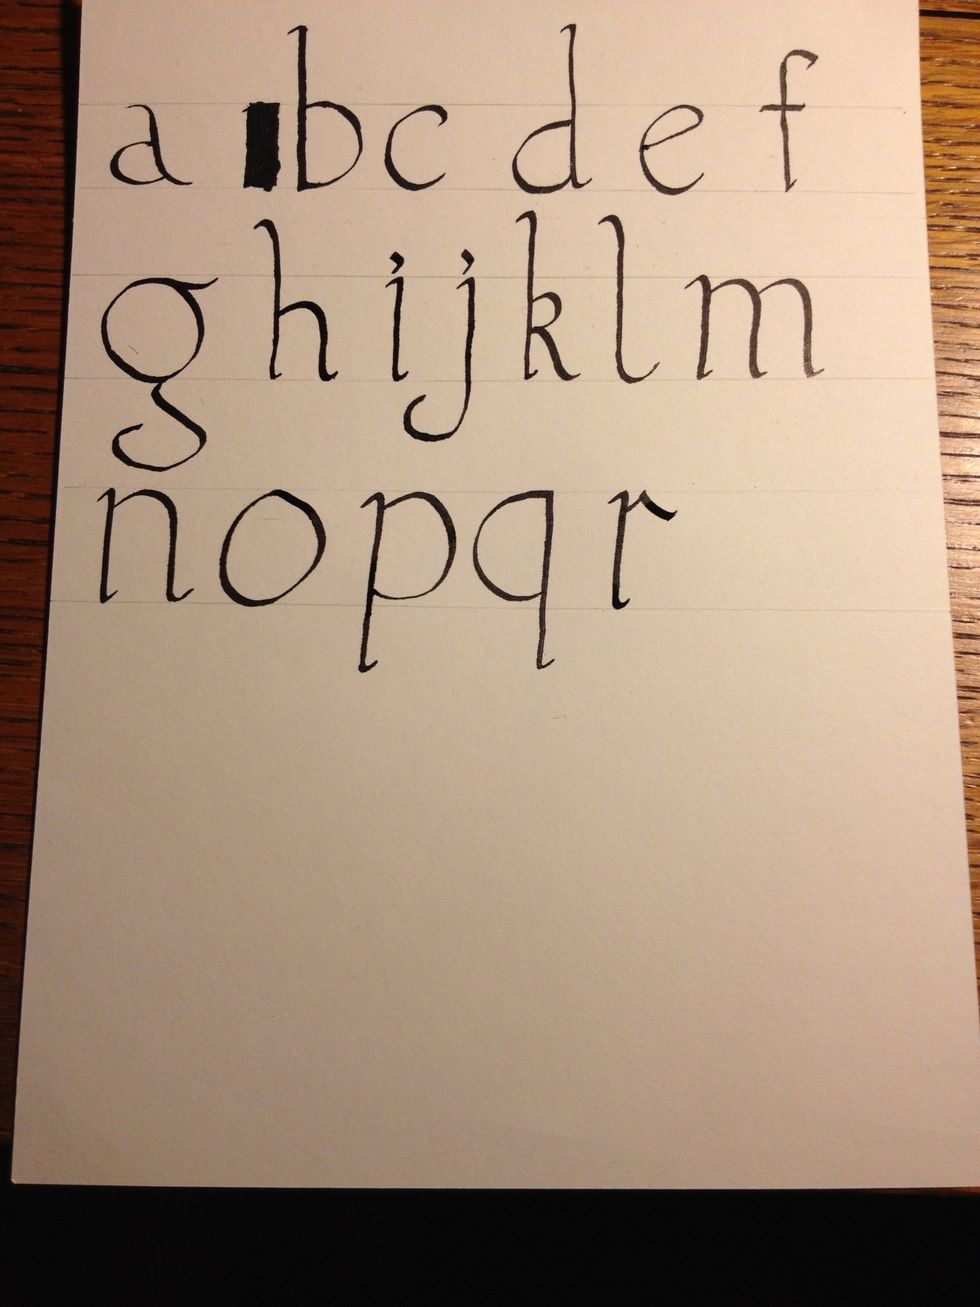 a bc d e f
g h i j k l m
n o p q r